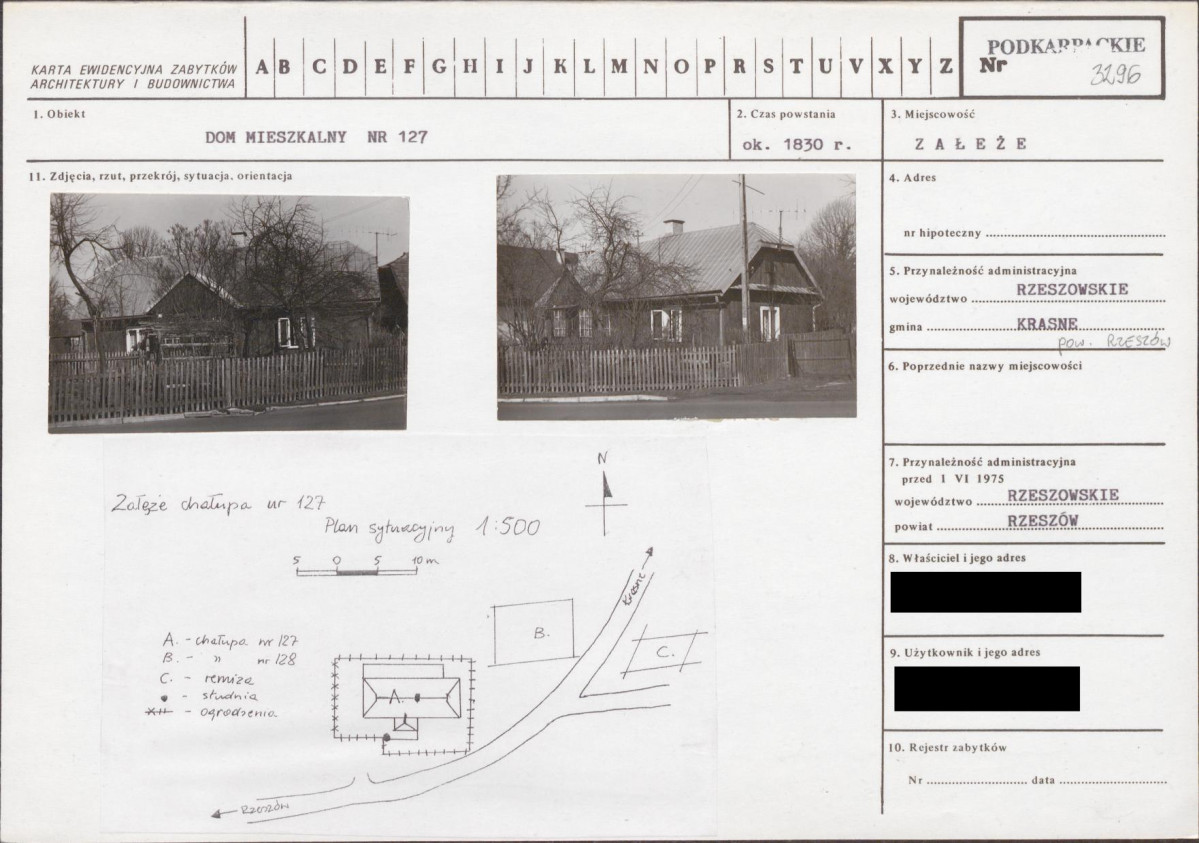 KARTA EWIDENCYJNA ZABYTKÓW
ARCHITEKTURY I BUDOWNICTWA
A B C D E F G H I J K L M N O P R S T U V X Y Z
PODKARPACKIE
Nr 3296
1. Obiekt
DOM MIESZKALNY NR 127
2. Czas powstania
ok. 1830 r.
3. Miejscowość
ZAŁEŻE
11. Zdjęcia, rzut, przekrój, sytuacja, orientacja
4. Adres
nr hipoteczny
5. Przynależność administracyjna
województwo RZESZOWSKIE
gmina KRASNE
pow. RZESZÓW
6. Poprzednie nazwy miejscowości
7. Przynależność administracyjna
przed 1 VI 1975
województwo RZESZOWSKIE
powiat RZESZÓW
8. Właściciel i jego adres
9. Użytkownik i jego adres
10. Rejestr zabytków
Nr data
Załęże chałupa nr 127
Plan sytuacyjny 1:500
N
5 0 5 10 m
A. - chałupa nr 127
B. - " nr 128
C. - remiza
- studnia
- ogrodzenia
A.
B.
C.
Krasne
Rzeszów